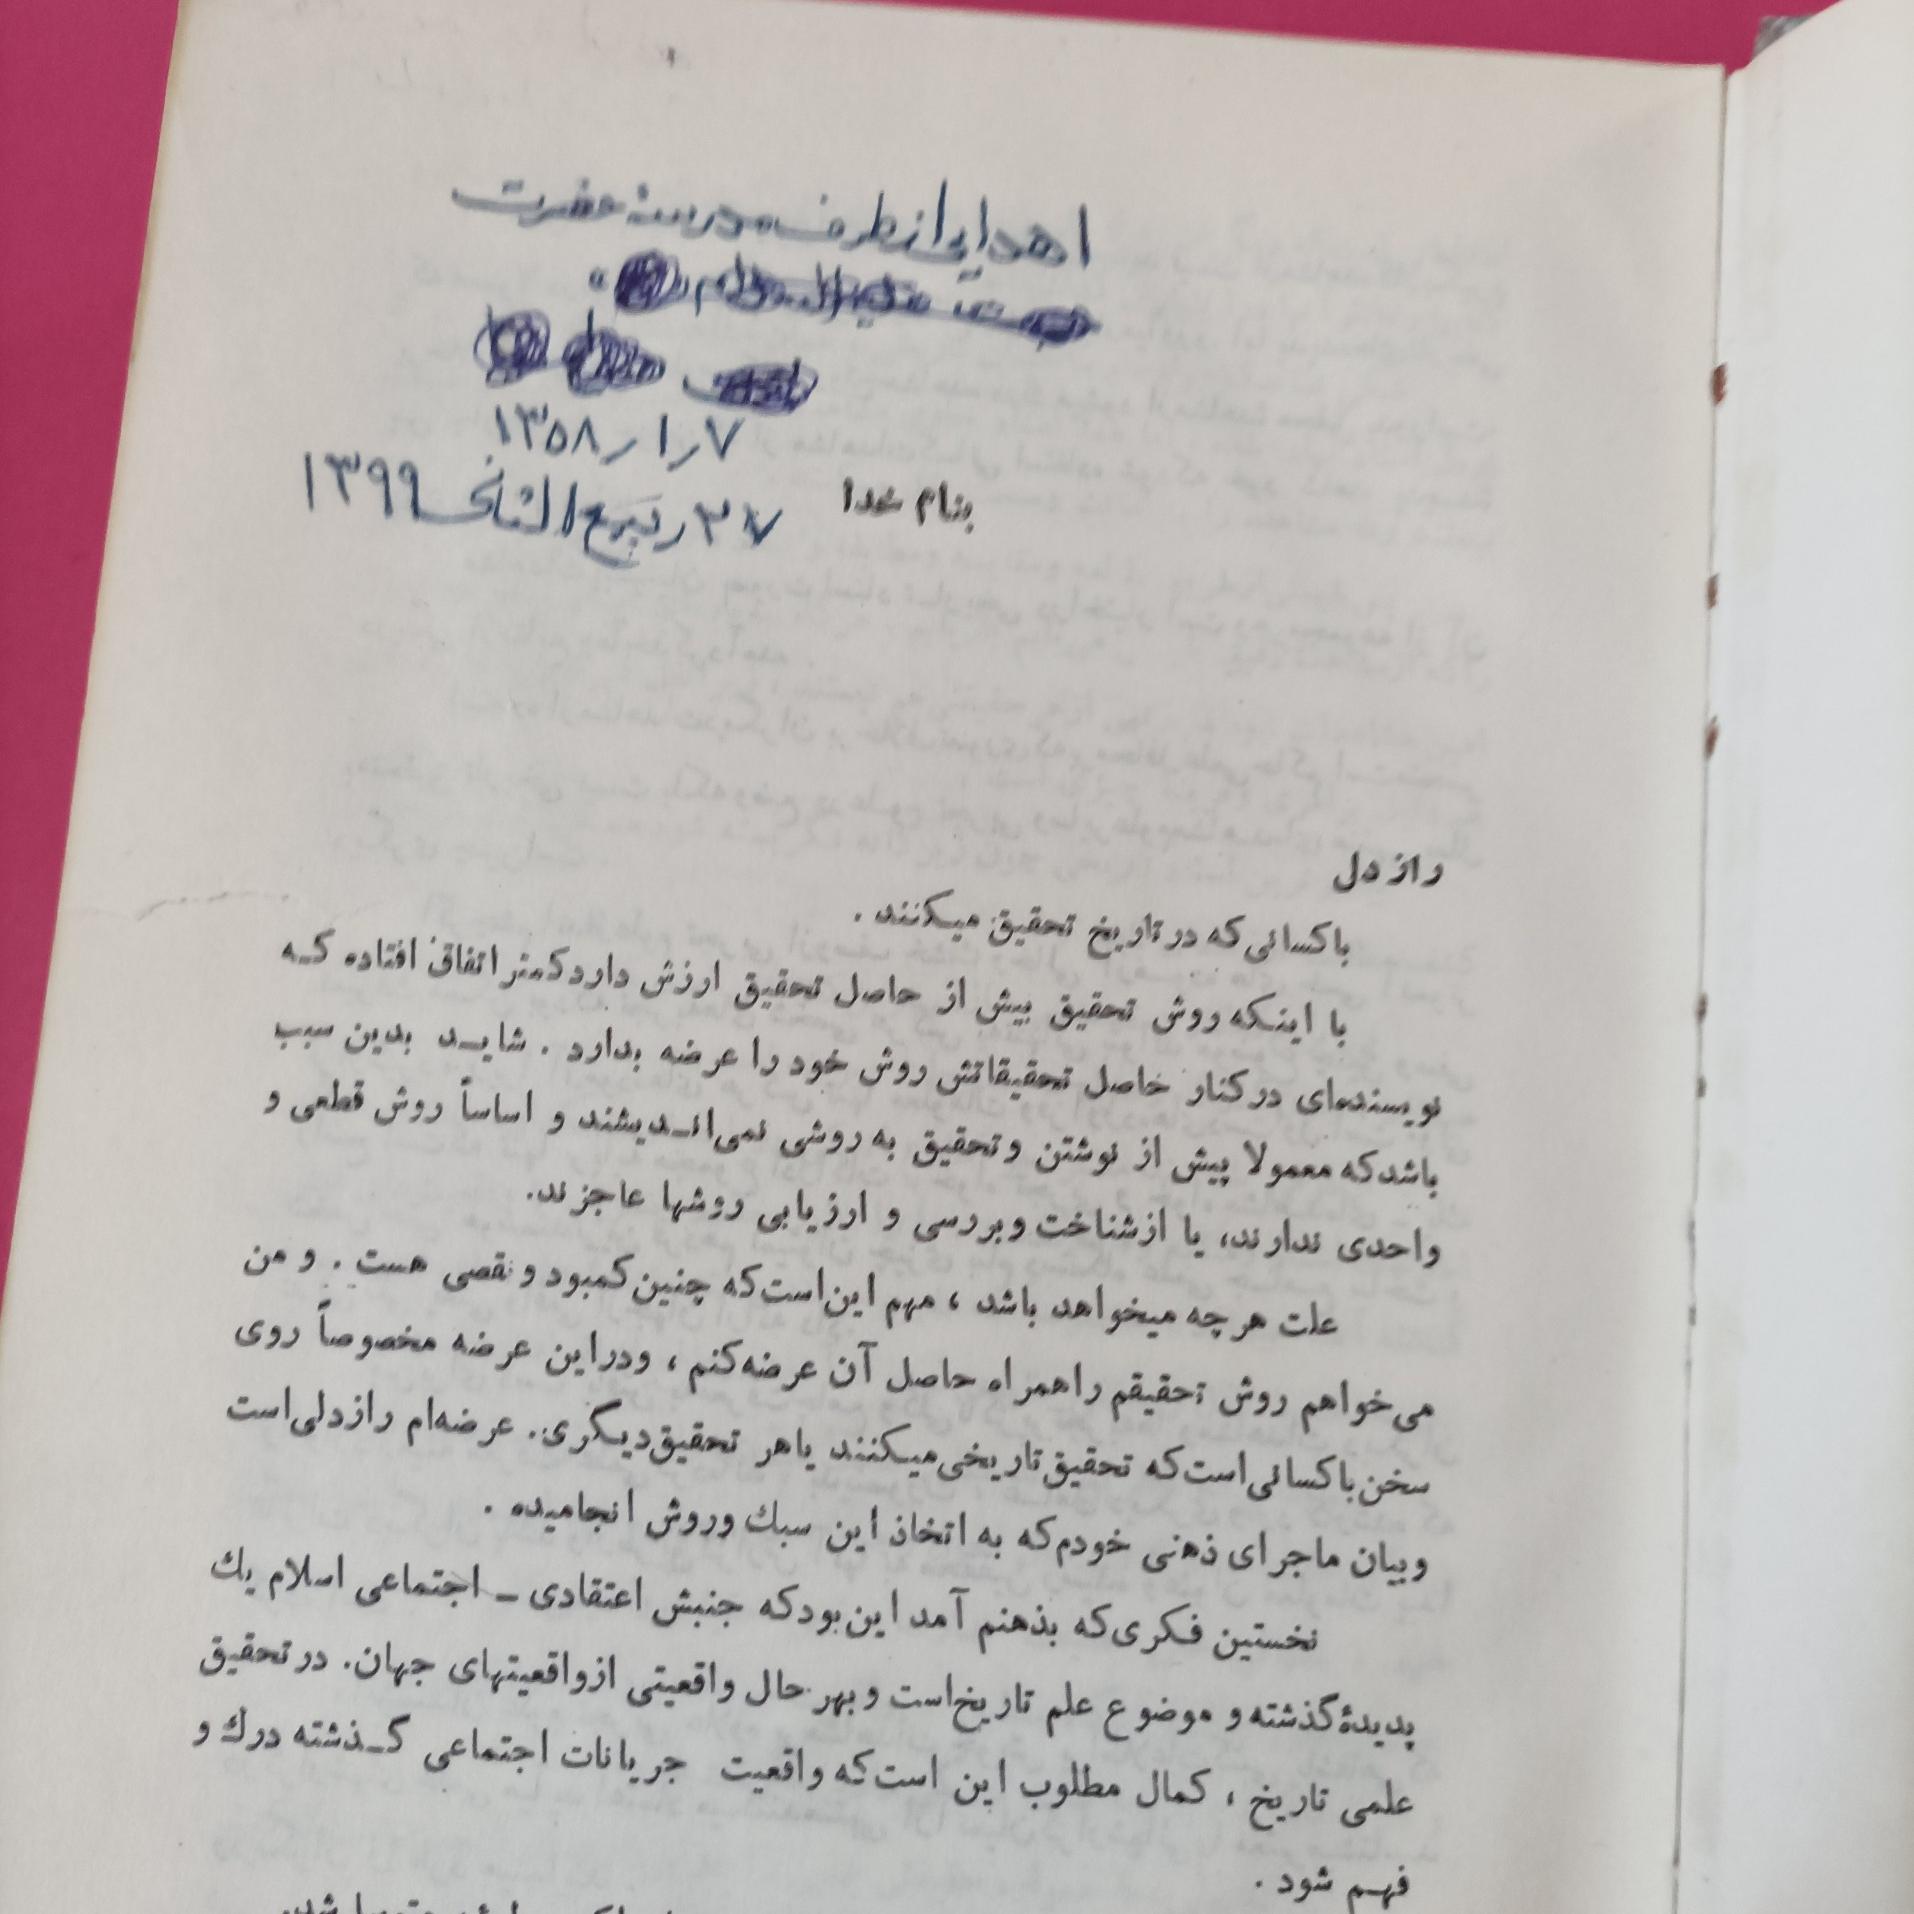 اهدایی از طرف مدرسهٔ حضرت
علیه السلام
۷ر۱ر۱۳۵۸
۲۷ ربیع الثانی ۱۳۹۹
بنام خدا
راز دل
با کسانی که در تاریخ تحقیق میکنند .
با اینکه روش تحقیق بیش از حاصل تحقیق ارزش دارد کمتر اتفاق افتاده که
نویسنده‌ای در کنار حاصل تحقیقاتش روش خود را عرضه بدارد . شاید بدین سبب
باشد که معمولا پیش از نوشتن و تحقیق به روشی نمی‌اندیشند و اساساً روش قطعی و
واحدی ندارند، یا از شناخت و بررسی و ارزیابی روشها عاجزند.
علت هر چه میخواهد باشد ، مهم این است که چنین کمبود و نقصی هست . و من
می‌خواهم روش تحقیقم را همراه حاصل آن عرضه کنم ، و در این عرضه مخصوصاً روی
سخن با کسانی است که تحقیق تاریخی میکنند یا هر تحقیق دیگری. عرضه‌ام راز دلی است
و بیان ماجرای ذهنی خودم که به اتخاذ این سبك و روش انجامیده .
نخستین فکری که بذهنم آمد این بود که جنبش اعتقادی ـ اجتماعی اسلام یك
پدیدهٔ گذشته و موضوع علم تاریخ است و بهر حال واقعیتی از واقعیتهای جهان. در تحقیق
علمی تاریخ ، کمال مطلوب این است که واقعیت جریانات اجتماعی گذشته درك و
فهم شود .